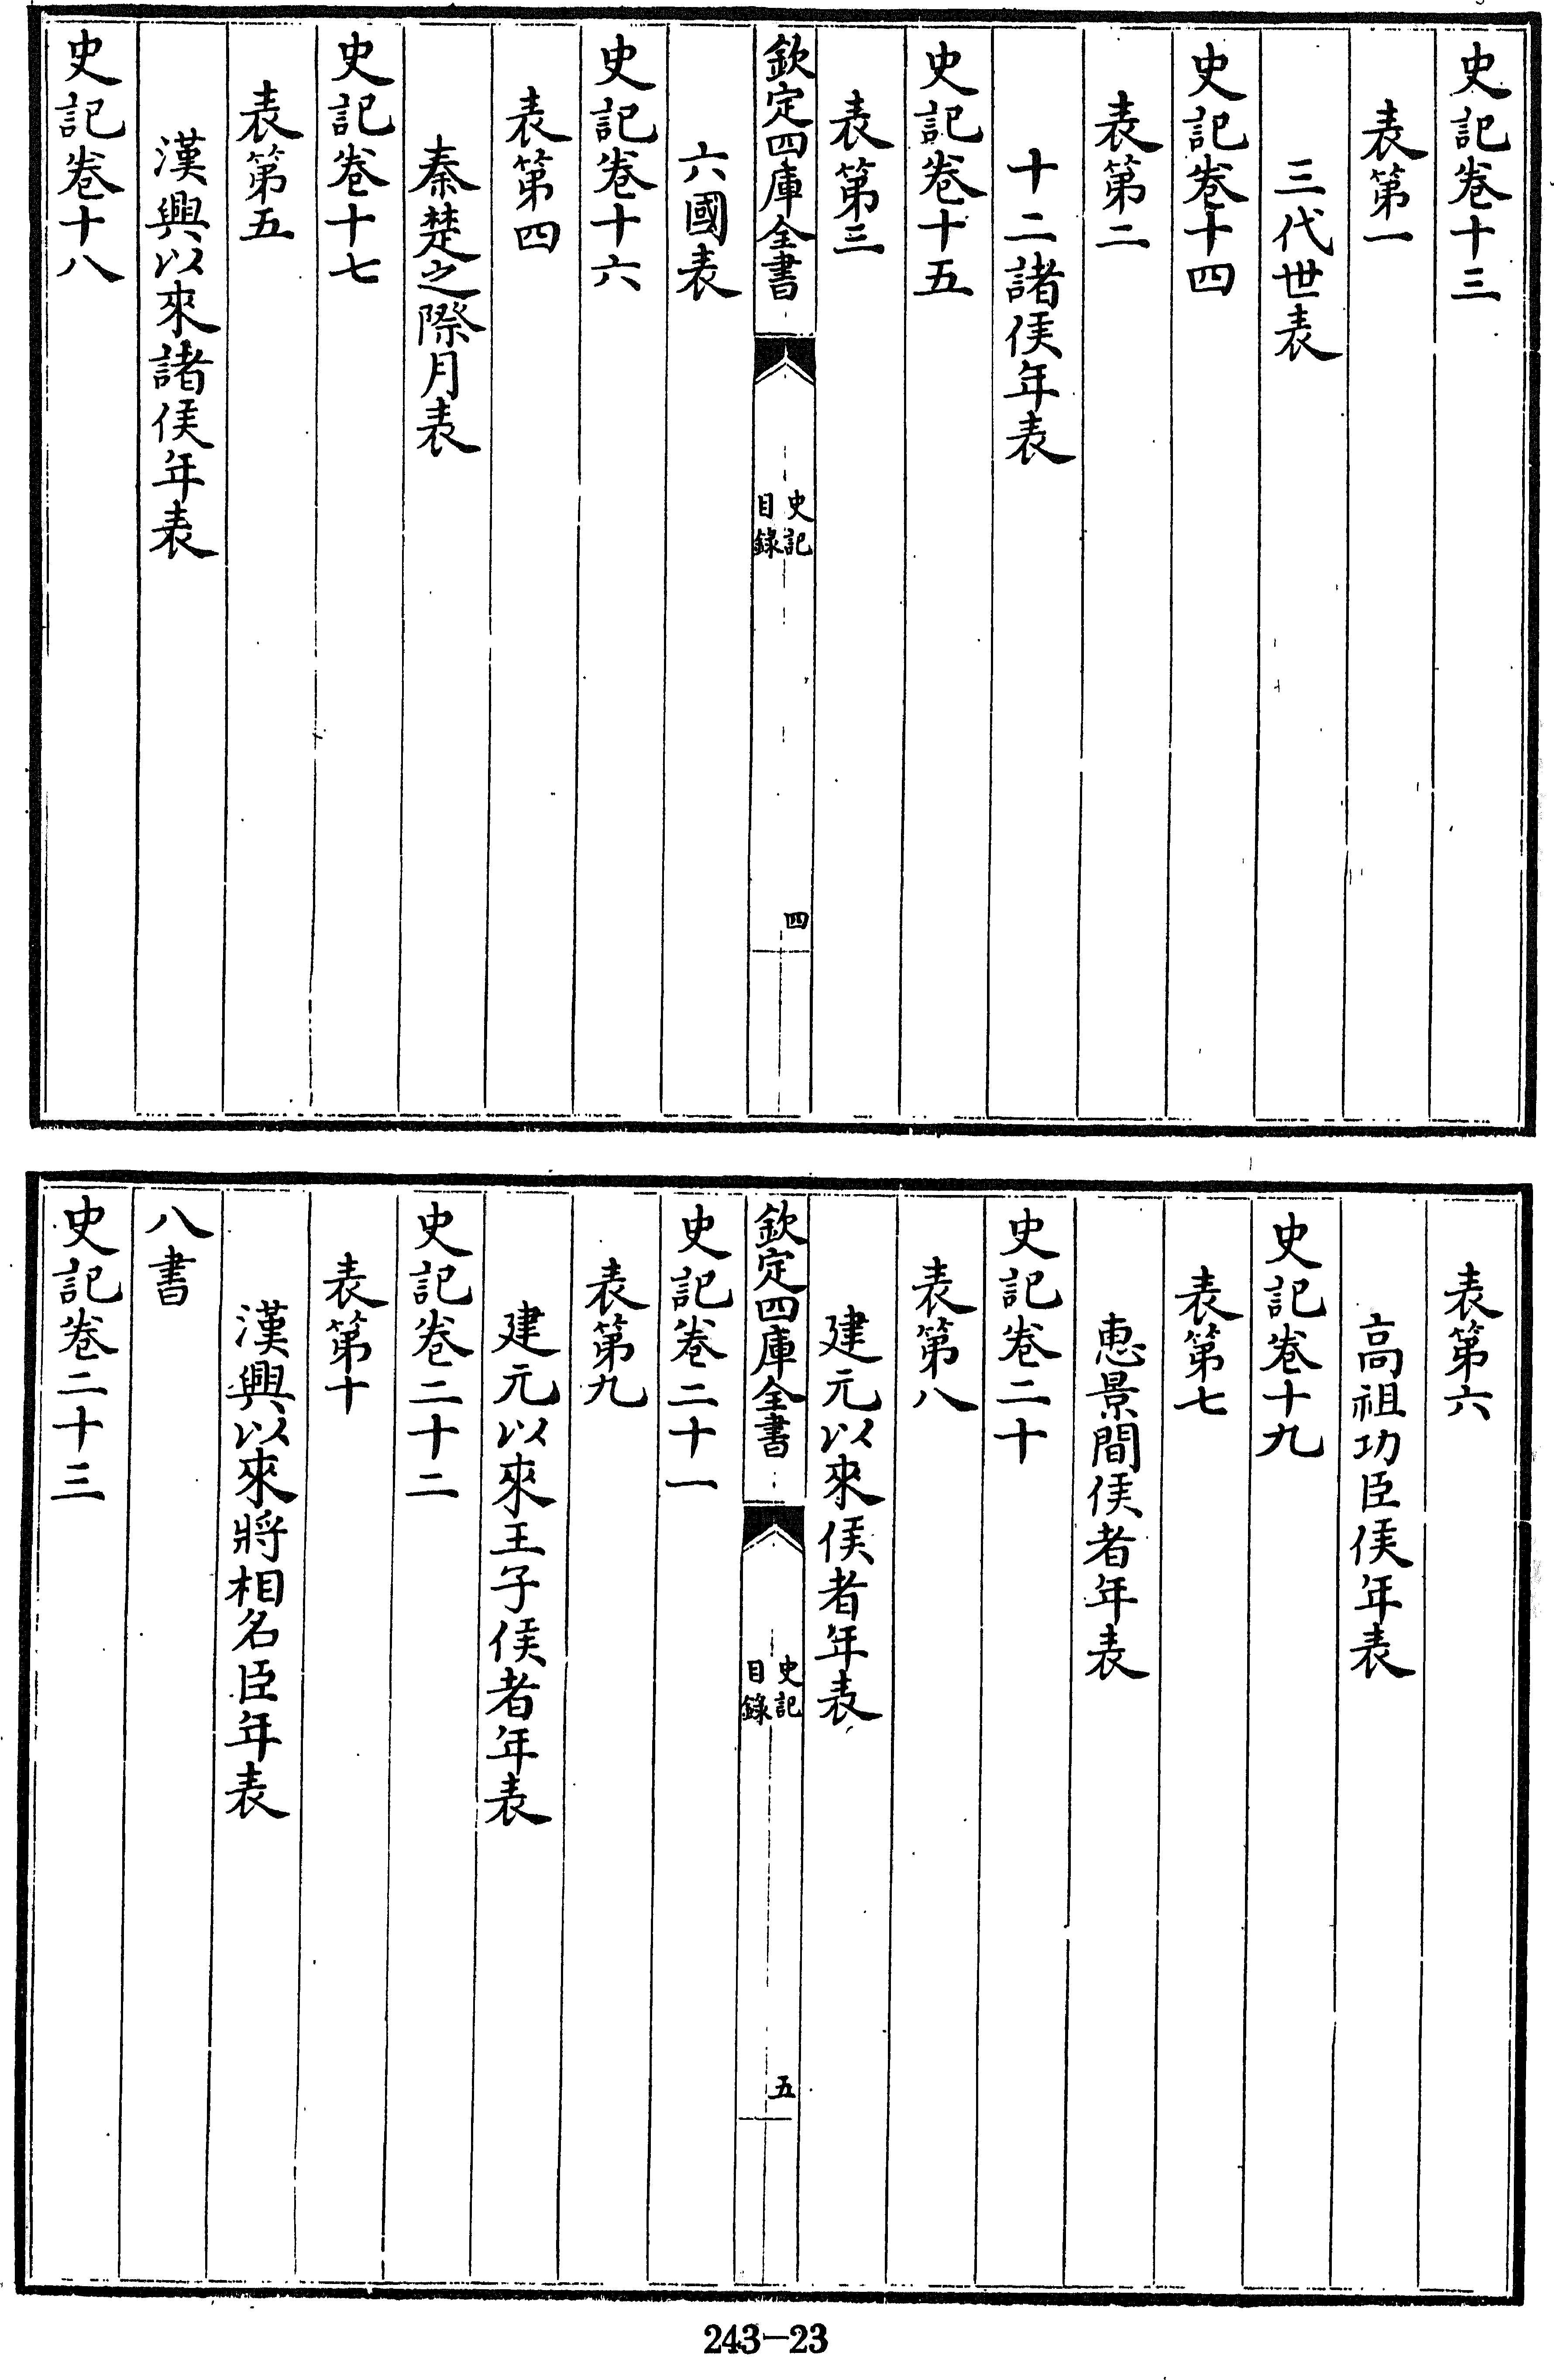 史記卷十三
表第一
三代世表
史記卷十四
表第二
十二諸侯年表
史記卷十五
表第三
欽定四庫全書
史記
目錄
四
六國表
史記卷十六
表第四
秦楚之際月表
史記卷十七
表第五
漢興以來諸侯年表
史記卷十八
表第六
高祖功臣侯年表
史記卷十九
表第七
惠景間侯者年表
史記卷二十
表第八
建元以來侯者年表
欽定四庫全書
史記
目錄
五
史記卷二十一
表第九
建元以來王子侯者年表
史記卷二十二
表第十
漢興以來將相名臣年表
八書
史記卷二十三
243-23